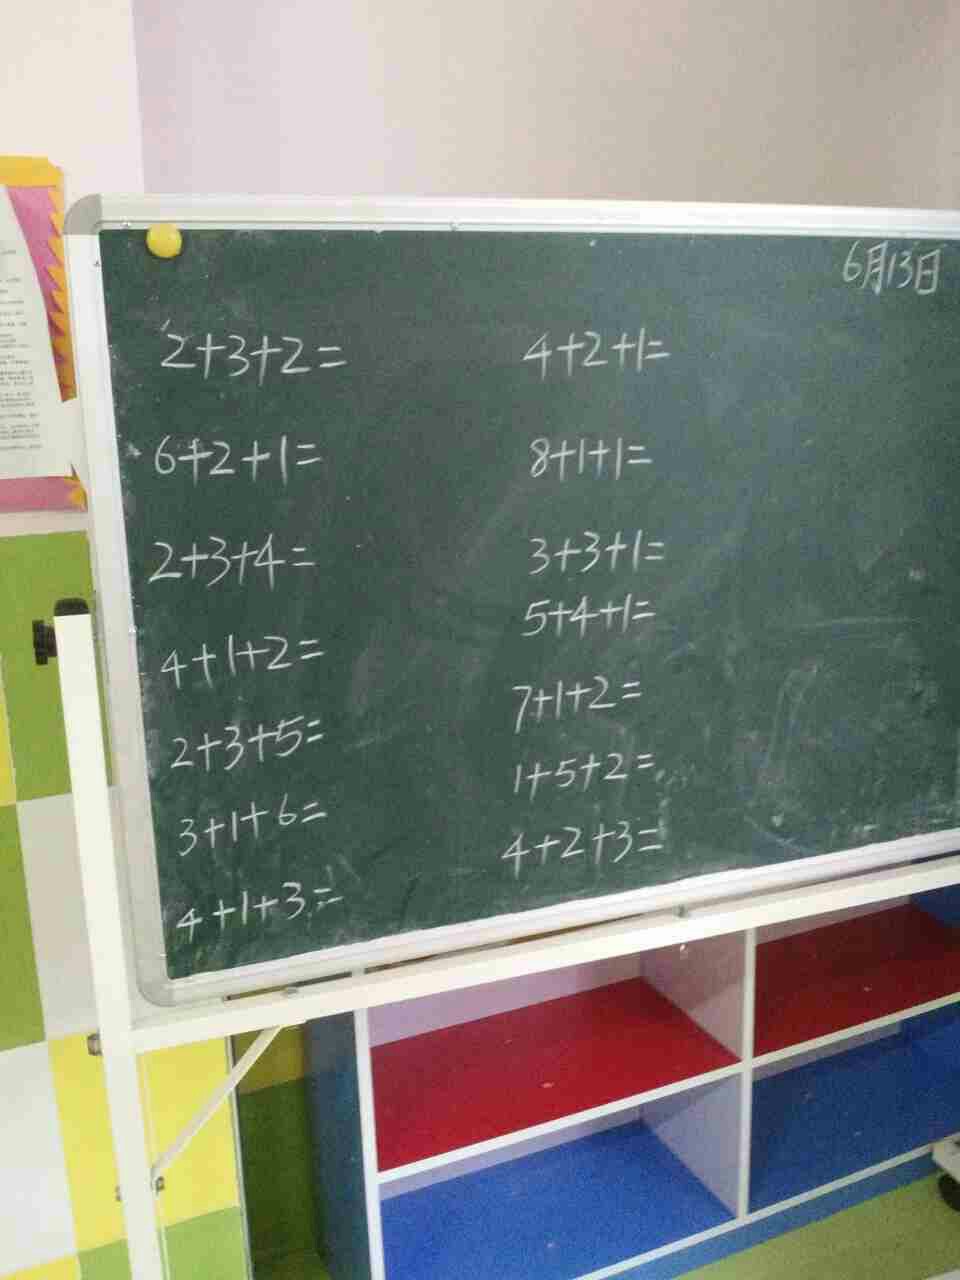 6月13日
2+3+2=
6+2+1=
2+3+4=
4+1+2=
2+3+5=
3+1+6=
4+1+3=
4+2+1=
8+1+1=
3+3+1=
5+4+1=
7+1+2=
1+5+2=
4+2+3=